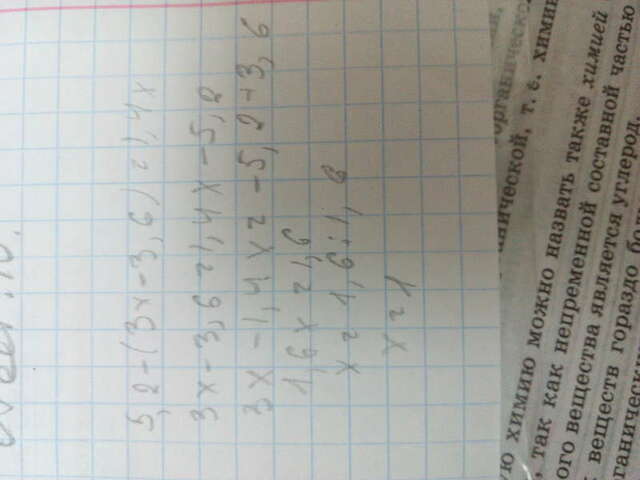 5,2-(3x-3,6)=1,4x
3x-3,6=1,4x-5,2
3x-1,4x=-5,2+3,6
1,6x=1,6
x=1,6:1,6
x=1
органическо
нической, т. е. химии
ую химию можно назвать также химией
, так как непременной составной частью
ого вещества является углерод.
х веществ гораздо бол
рганически